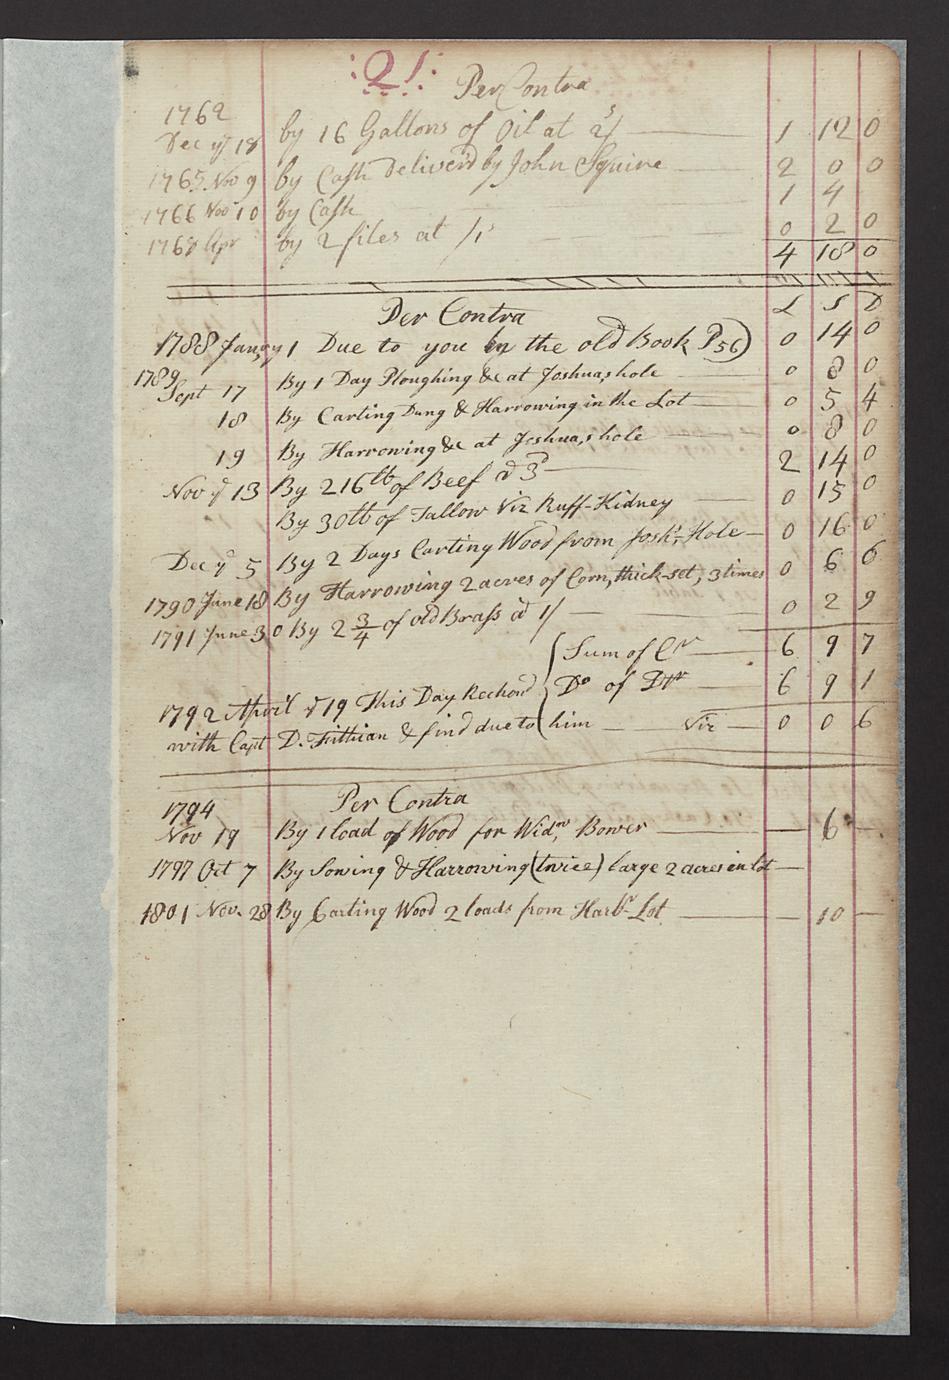 :21:
Per Contra
1762
Dec ye 18 by 16 Gallons of Oil at 2/ 1 12 0
1765 Nov 9 by Cash deliver'd by John Squire 2 0 0
1766 Nov 10 by Cash 1 4
1768 Apr by 2 files at /1s 0 2 0
4 18 0
Per Contra L S D
1788 Janry 1 Due to you by the old Book P 56) 0 14 0
1789
Sept 17 By 1 Day Ploughing &c at Joshua,s hole 0 8 0
18 By Carting Dung & Harrowing in the Lot 0 5 4
19 By Harrowing &c at Joshua,s hole 0 8 0
Nov ye 13 By 216 lb of Beef @ 3d 2 14 0
By 30 lb of Tallow Viz Ruff-Kidney 0 15 0
Dec ye 5 By 2 Days Carting Wood from Josh's Hole 0 16 0
1790 June 18 By Harrowing 2 acres of Corn, thick-set, 3 times 0 6 6
1791 June 30 By 2 3/4 of old Brass @ 1/ 0 2 9
Sum of Cr 6 9 7
1792 April ye 19 This Day Reckond Do of Dtr 6 9 1
with Capt D. Fithian & find due to him Viz 0 0 6
Per Contra
1794
Nov 19 By 1 load of Wood for Widw, Bower 6
1797 Oct 7 By Sowing & Harrowing (twice) large 2 acres in lot
1801 Nov. 28 By Carting Wood 2 loads from Harbr Lot 10